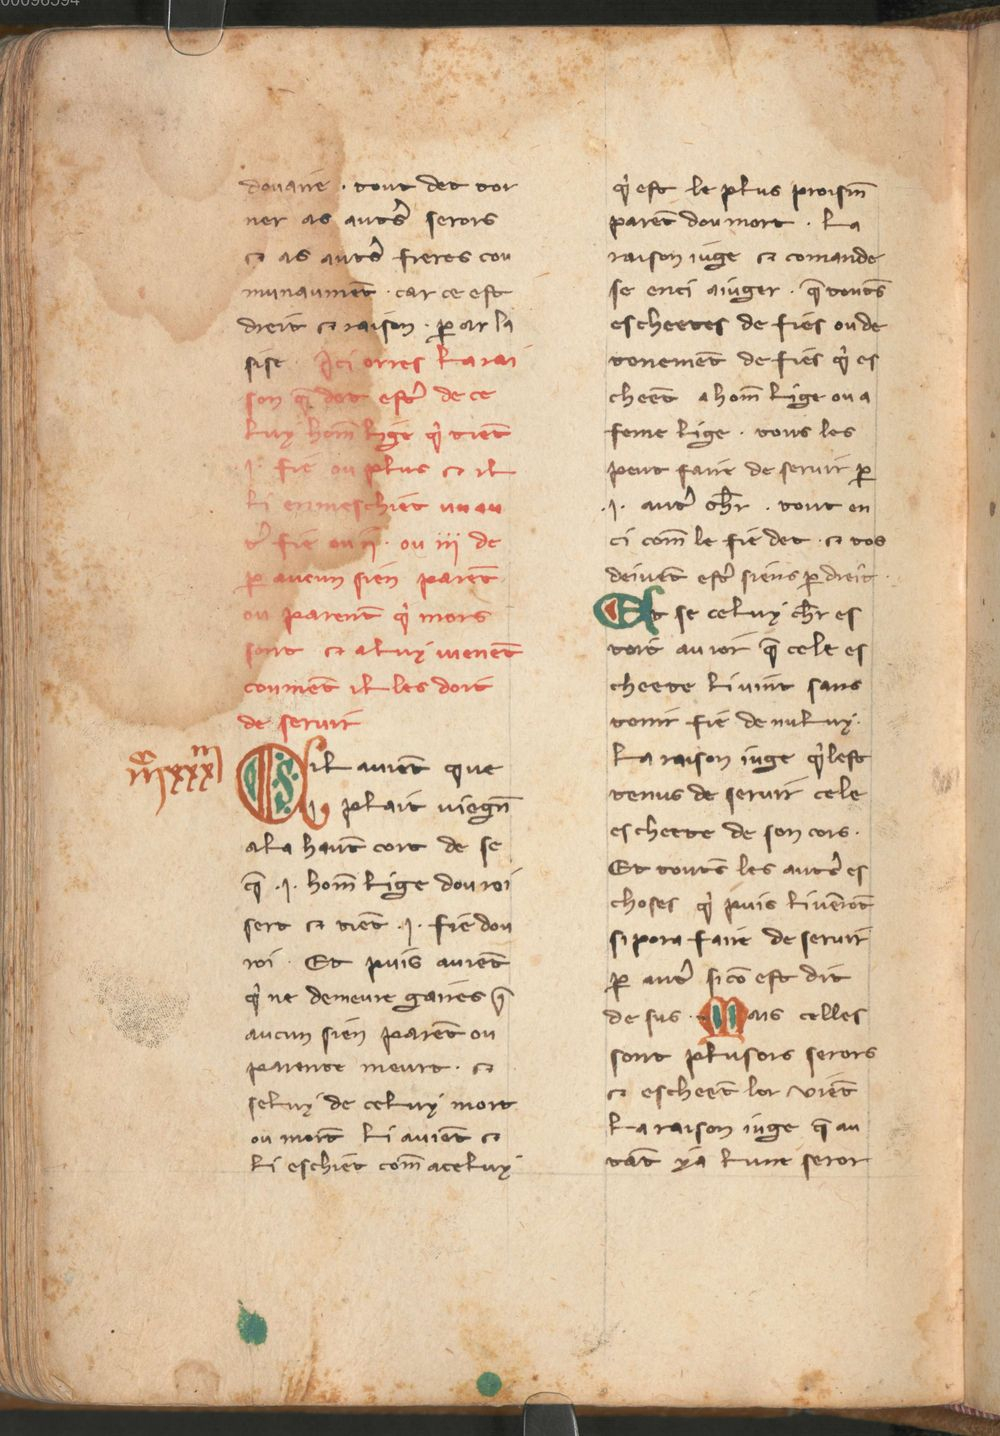 00096594
douaire · tout det tor
ner as autẽs serors
⁊ as autẽs freres cou
munaumẽt · car ce est
dreit ⁊ raison · ꝑ ar la
sise · Ici orres la rai
son q̃ det estr̃ de ce
luy hom̃ lige q̇ tiẽt
·i· fie ou plus ⁊ il
li enmeschiet un au
tr̃ fie ou ii · ou iii de
ꝑ aucun siẽn parẽt
ou parent q̇ mors
sont ⁊ a luy uienẽt
coumẽt il les doit
de seruir
Sil auiẽt que
·i· plait uiegñ
a la haut cort de se
q̃ ·i· hom̃ lige dou roi
sert ⁊ tiẽt ·i· fie dou
roi · Et puis auiẽt
q̇ ne demeure gaires q̃
aucun siẽn parẽt ou
parente meurt · ⁊
seluy de celuy mort
ou mort li auiẽt ⁊
li eschiet com̃ a celuy
q̇ est le plus proism̃
parẽt dou mort · La
raison iuge ⁊ comande
se enci aiuger · q̃ toutẽs
escheetes de fies ou de
tenemẽt de fies q̇ es
cheẽt a hom̃ lige ou a
feme lige · tous les
peut faire de seruir ꝑ
·i· autr̃ ch̃r · tout en
ci com̃ le fie det · ⁊ tos
deiuẽt estr̃ siens ꝑ dreit ·
Et se celuy ch̃r es
toit au ior q̃ cele es
cheete li uint sans
tenir fie de nuluy ·
La raison iuge q̇l est
tenus de seruir cele
escheete de son cors ·
Et toutẽs les autẽs es
choses q̇ puis li uẽrõt
si pora faire de seruir
ꝑ autr̃ si cõ est dit
de sus · Mais celles
sont plusors serors
⁊ escheẽt lor viẽt
La raison iuge q̃ au
tãt y a l'une seror